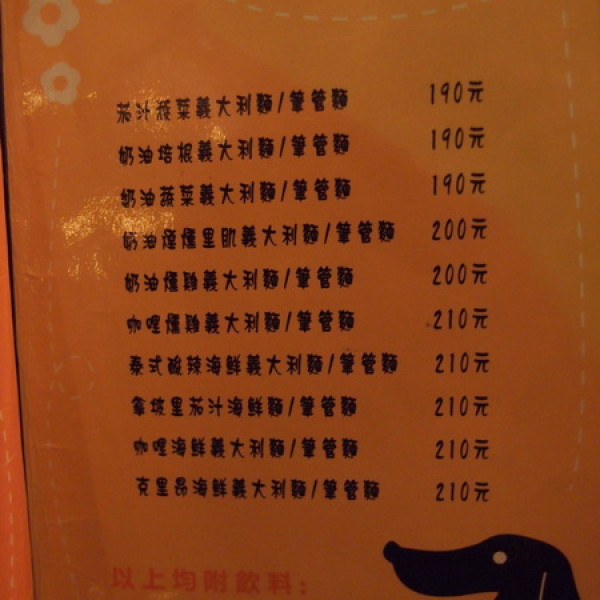 茄汁蔬菜義大利麵/筆管麵 190元
奶油培根義大利麵/筆管麵 190元
奶油蔬菜義大利麵/筆管麵 190元
奶油煙燻里肌義大利麵/筆管麵 200元
奶油燻雞義大利麵/筆管麵 200元
咖哩燻雞義大利麵/筆管麵 210元
泰式酸辣海鮮義大利麵/筆管麵 210元
拿坡里茄汁海鮮麵/筆管麵 210元
咖哩海鮮義大利麵/筆管麵 210元
克里昂海鮮義大利麵/筆管麵 210元
以上均附飲料: